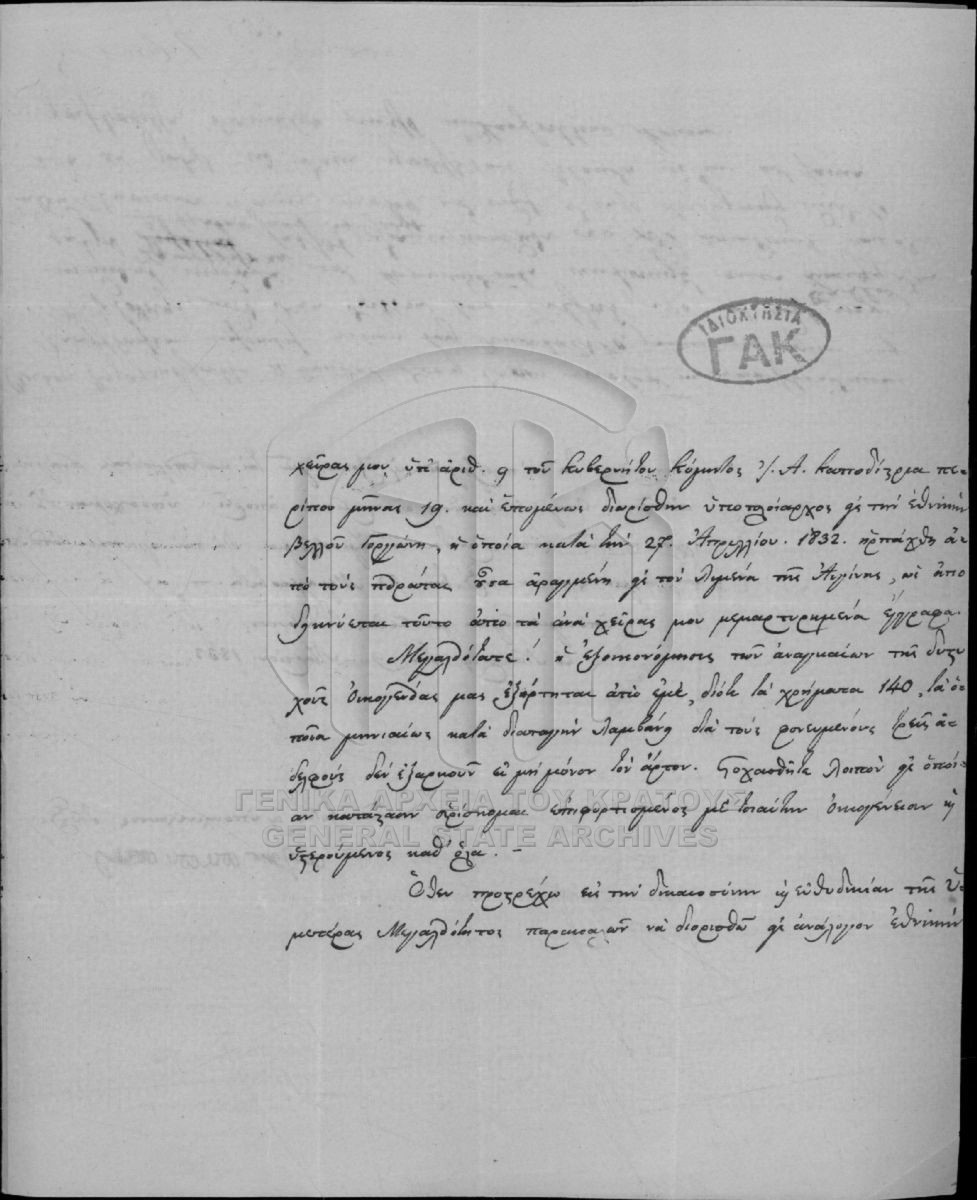 ΙΔΙΟΚΤΗΣΙΑ
ΓΑΚ
χεῖρας μου ὑπ' ἀριθ. 9 τοῦ Κυβερνήτου Κόμητος Ι. Α. Καποδίςρια πε-
ρίπου μῆνας 19. καὶ ἑπομένως διωρίσθην ὑποπλοίαρχος εἰς τὴν ἐθνικὴν
κατὰ τὴν Ἀπριλλίου. 1832. ἡρπάχθη ἀ-
πὸ τοὺς οὖσα ἀραγμένη εἰς τὸν λιμένα τῆς Αἰγίνης, ὡς ἀπο
δεικνύεται τοῦτο ἀπὸ τὰ ἀνὰ χεῖρας μου μεμαρτυρημένα ἔγγραφα.
Μεγαλειότατε! ἡ ἐξοικονόμησις τῶν ἀναγκαίων τῆς δυςυ
χοῦς οἰκογενείας μας ἐξήρτηται ἀπὸ ἐμὲ, διότι τὰ χρήματα 140, τὰ ὁ-
ποῖα μηνιαίως κατὰ διαταγὴν λαμβάνω διὰ τοὺς φονευμένους τρεῖς ἀ-
δελφούς δὲν ἐξαρκοῦν εἰ μὴ μόνον τὸν ἄρτον. Στοχασθῆτε λοιπὸν εἰς ὁποί-
αν κατάςασιν εὑρίσκομαι ἐπιφορτισμένος μὲ τοιαύτην οἰκογένειαν κ
ὑςερούμενος καθ' ὅλα. –
Ὅθεν προςρέχω εἰς τὴν δικαιοσύνην κ εὐθυδικίαν τῆς Ὑ-
μετέρας Μεγαλειότητος παρακαλῶν νὰ διορισθῶ εἰς ἀνάλογον ἐθνικὴν
ΓΕΝΙΚΑ ΑΡΧΕΙΑ ΤΟΥ ΚΡΑΤΟΥΣ
GENERAL STATE ARCHIVES